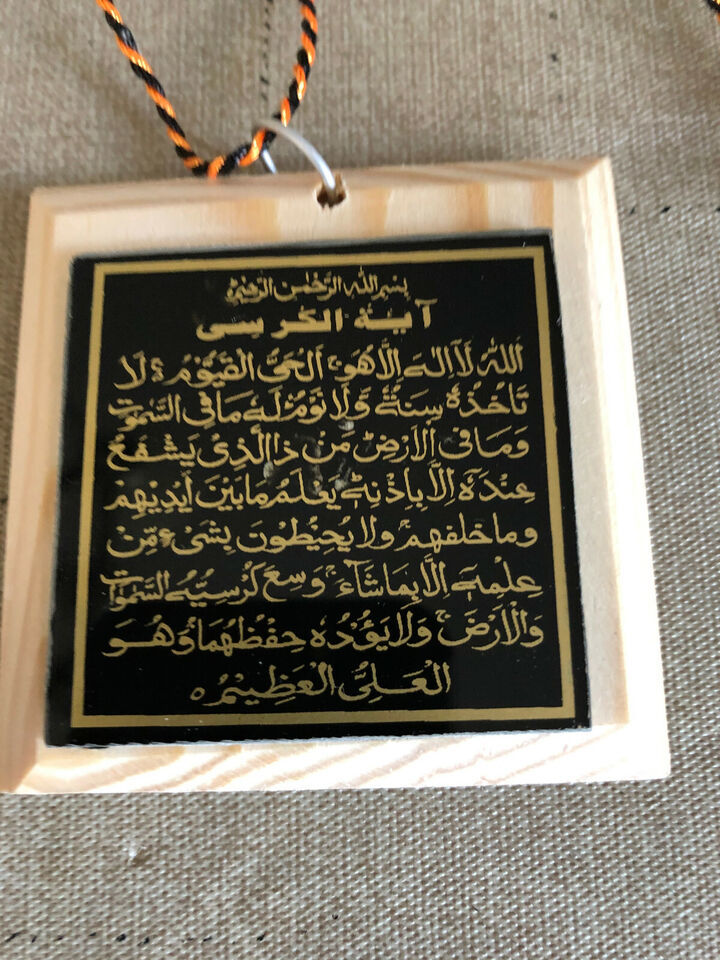 بِسْمِ اللهِ الرَّحْمٰنِ الرَّحِيْمِ
آية الكرسى
اَللهُ لَآ اِلٰهَ اِلَّا هُوَ ۚ اَلْحَىُّ الْقَيُّوْمُ ۚ لَا
تَاْخُذُهٗ سِنَةٌ وَّلَا نَوْمٌ ؕ لَهٗ مَا فِى السَّمٰوٰتِ
وَمَا فِى الْاَرْضِ ؕ مَنْ ذَا الَّذِىْ يَشْفَعُ
عِنْدَهٗٓ اِلَّا بِاِذْنِهٖ ؕ يَعْلَمُ مَا بَيْنَ اَيْدِيْهِمْ
وما خلفهم ۚ ولا يُحِيْطُوْنَ بِشَىْءٍ مِّنْ
عِلْمِهٖٓ اِلَّا بِمَا شَآءَ ۚ وَسِعَ كُرْسِيُّهُ السَّمٰوٰتِ
وَالْاَرْضَ ۚ وَلَا يَؤُدُهٗ حِفْظُهُمَا ۚ وَهُوَ
الْعَلِىُّ الْعَظِيْمُ ه